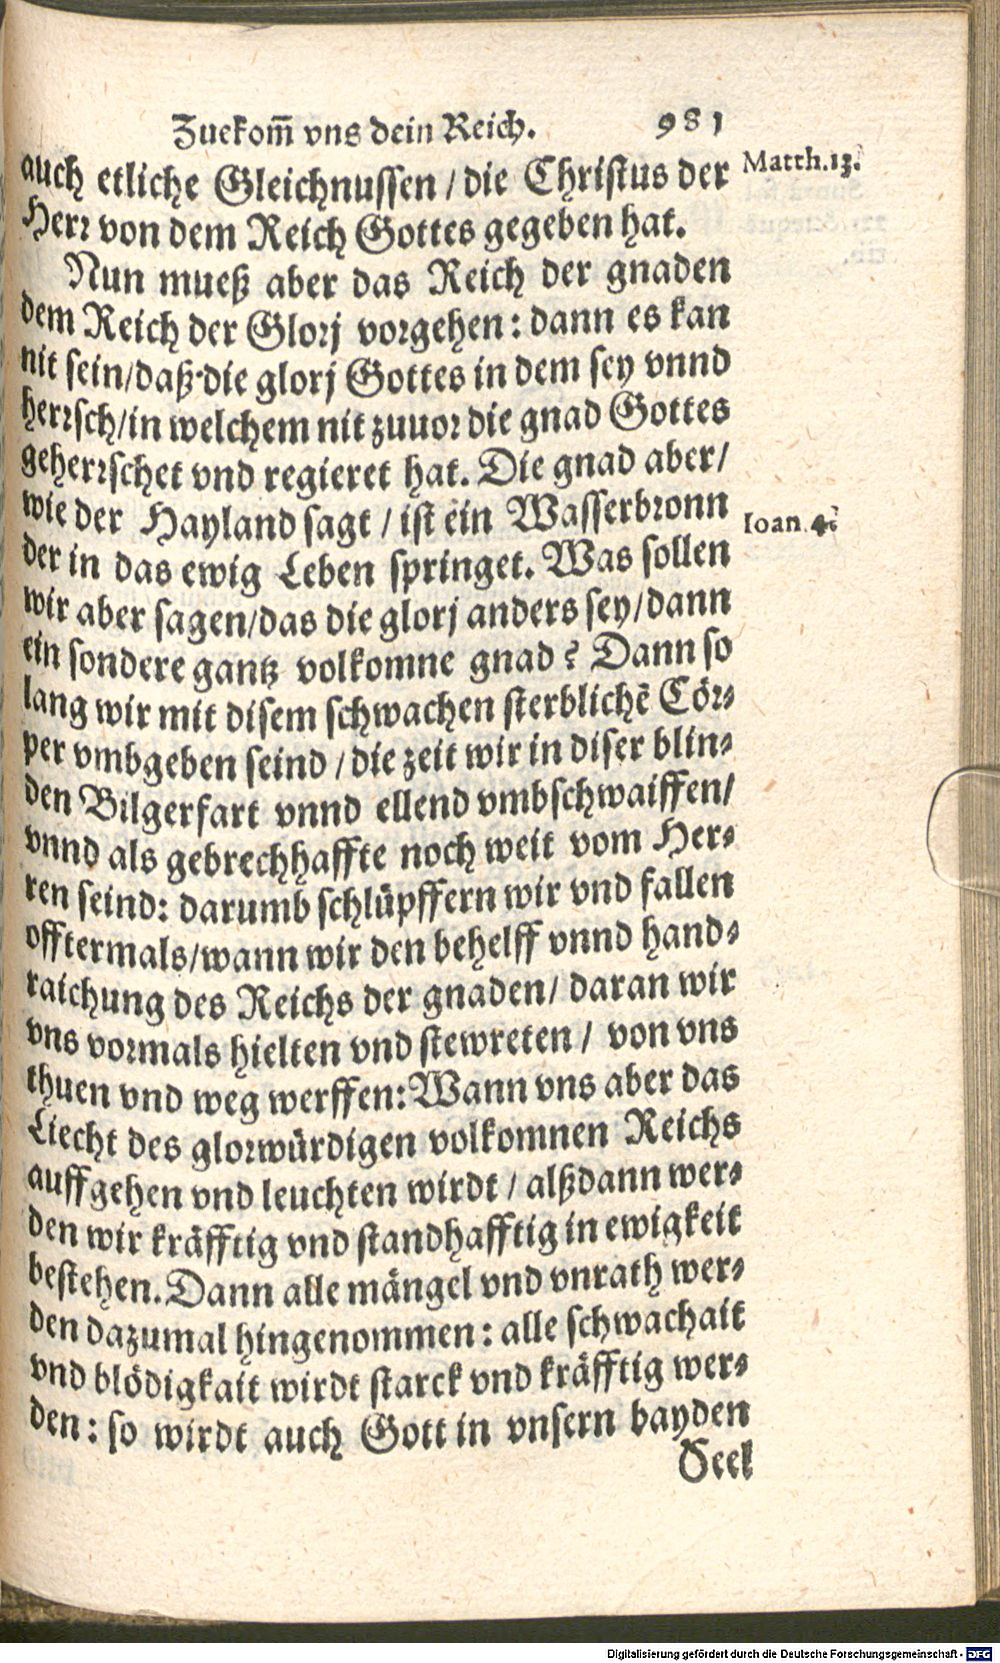 Zuekom̃ vns dein Reich. 981
auch etliche Gleichnussen / die Christus der
Matth.13.
Herr von dem Reich Gottes gegeben hat.
Nun mueß aber das Reich der gnaden
dem Reich der Glorj vorgehen: dann es kan
nit sein/daß die glorj Gottes in dem sey vnnd
herrsch/in welchem nit zuuor die gnad Gottes
geherrschet vnd regieret hat. Die gnad aber/
wie der Hayland sagt / ist ein Wasserbronn
Ioan.4.
der in das ewig Leben springet. Was sollen
wir aber sagen/das die glorj anders sey/dann
ein sondere gantz volkomne gnad? Dann so
lang wir mit disem schwachen sterblichẽ Cör-
per vmbgeben seind / die zeit wir in diser blin-
den Bilgerfart vnnd ellend vmbschwaiffen/
vnnd als gebrechhaffte noch weit vom Her-
ren seind: darumb schlüpffern wir vnd fallen
offtermals/wann wir den behelff vnnd hand-
raichung des Reichs der gnaden/ daran wir
vns vormals hielten vnd stewreten / von vns
thuen vnd weg werffen: Wann vns aber das
Liecht des glorwürdigen volkomnen Reichs
auffgehen vnd leuchten wirdt / alßdann wer-
den wir kräfftig vnd standhafftig in ewigkeit
bestehen. Dann alle mängel vnd vnrath wer-
den dazumal hingenommen: alle schwachait
vnd blödigkait wirdt starck vnd kräfftig wer-
den: so wirdt auch Gott in vnsern bayden
Seel
Digitalisierung gefördert durch die Deutsche Forschungsgemeinschaft - DFG